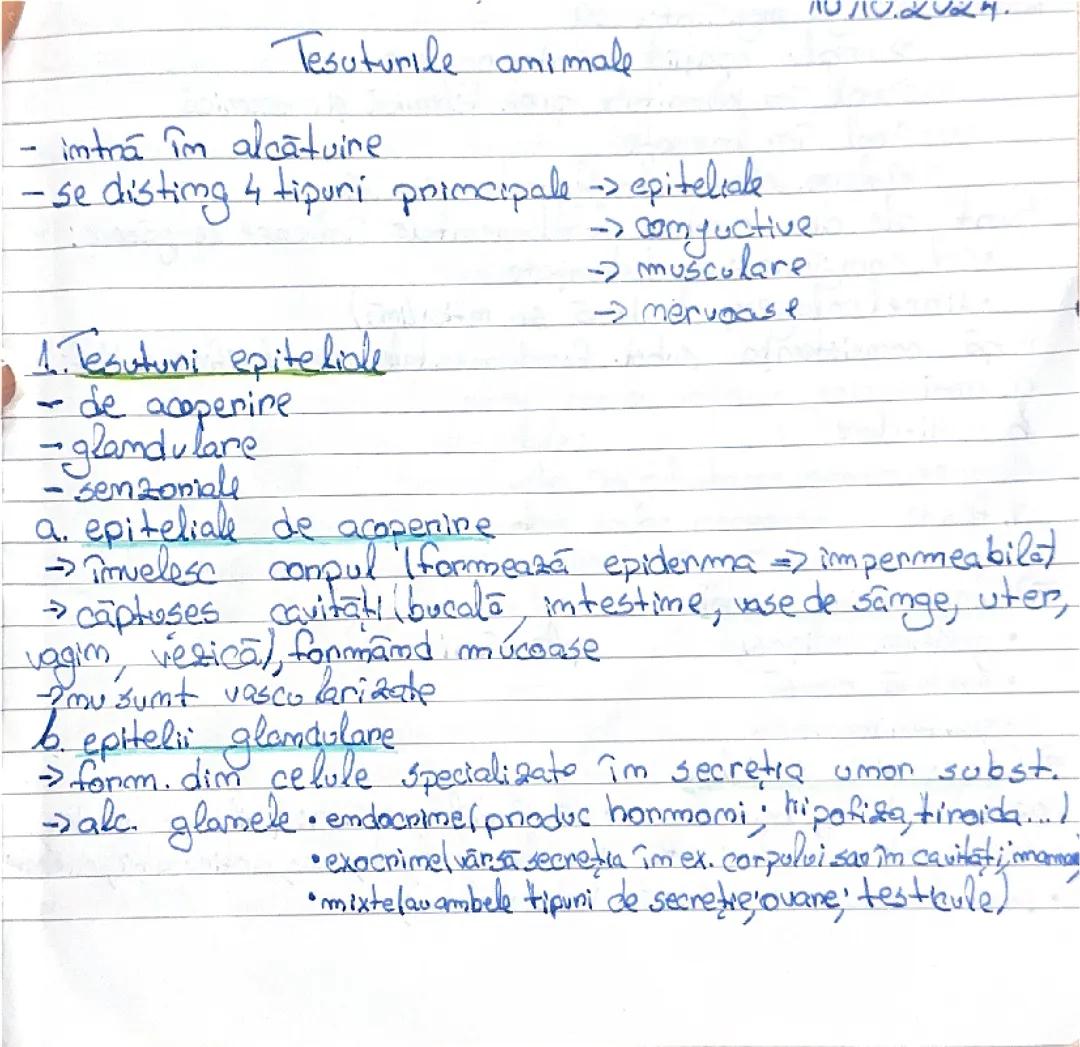 10.10.2024.
Tesuturile animale
- intră în alcătuire
- se disting 4 tipuri principale -> epiteliale
-> conjuctive
-> musculare
-> nervoase
1. Tesuturi epiteliale
- de acoperire
- glandulare
- senzoriale
a. epiteliale de acoperire
-> învelesc corpul (formează epiderma => impermeabilă)
-> căptuses cavități (bucală, intestine, vase de sânge, uter,
vagin, vezică), formând mucoase
-> nu sunt vascularizate
b. epitelii glandulare
-> form. din celule specializate în secreția unor subst.
-> alc. glandele • endocrine (produc hormoni; hipofiza, tiroida...)
• exocrine (vărsă secreția în ex. corpului sau în cavități;
• mixte (au ambele tipuri de secreție; ovare; testicule)